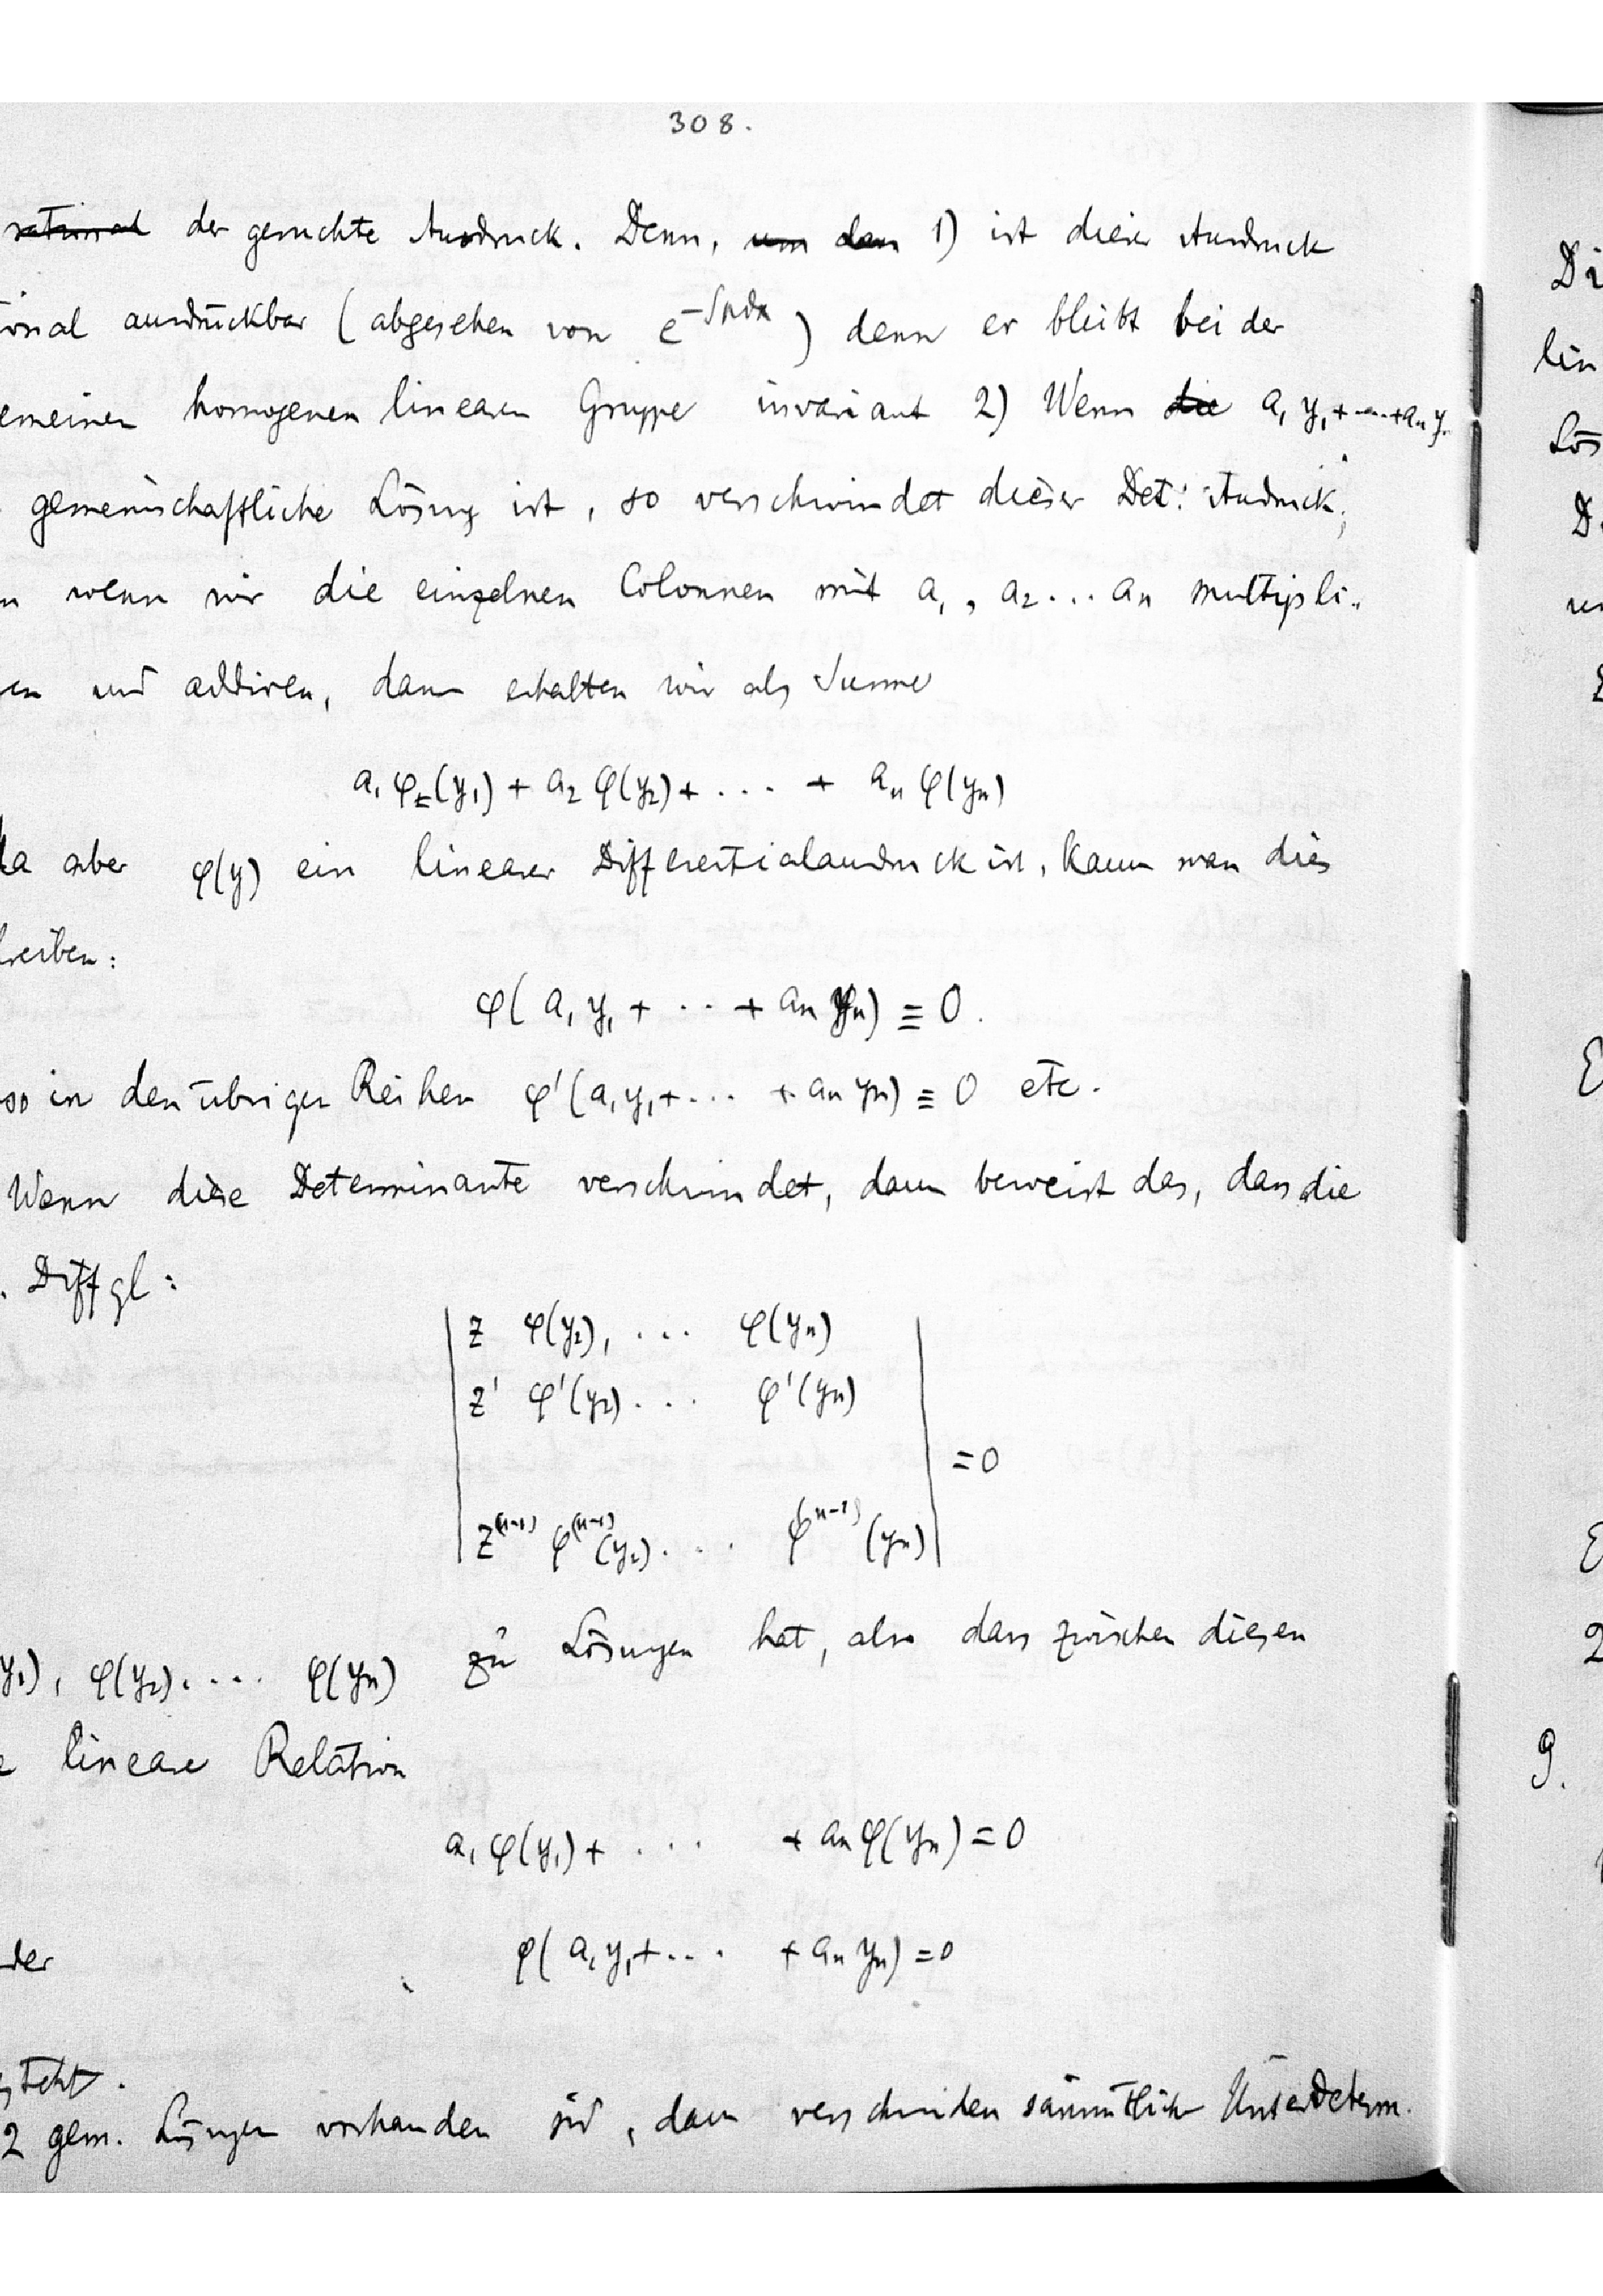 308.
rational der gesuchte Ausdruck. Denn, um dan 1) ist dieser Ausdruck
ional ausdrückbar (abgesehen von e^{-∫p_1dx}) denn er bleibt bei der
emeinen homogenen linearen Gruppe invariant 2) Wenn die a₁y₁+....+aₙyₙ
gemeinschaftliche Lösung ist, so verschwindet dieser Det. Ausdruck,
n wenn wir die einzelnen Colonnen mit a₁, a₂... aₙ multipli-
en und addiren, dann erhalten wir als Summe
a₁ φ(y₁) + a₂ φ(y₂) + .... + aₙ φ(yₙ)
da aber φ(y) ein linearer Differentialausdruck ist, kann man dies
hreiben:
φ( a₁ y₁ + ... + aₙ yₙ) ≡ 0.
so in den übrigen Reihen φ'(a₁y₁+... + aₙ yₙ) ≡ 0 etc.
Wenn diese Determinante verschwindet, dann beweist das, dass die
. Diffgl:
z φ(y₂), ... φ(yₙ)
z' φ'(y₂)... φ'(yₙ)
= 0
z^{(n-1)} φ^{(n-1)}(y₂)... φ^{(n-1)}(yₙ)
y₁), φ(y₂).... φ(yₙ) zu Lösungen hat, also dass zwischen diesen
e lineare Relation
a₁ φ(y₁) + ... + aₙ φ(yₙ) = 0
der φ( a₁ y₁+... + aₙ yₙ) = 0
steht.
2 gem. Lösungen vorhanden sind, dann verschwinden sämmtliche Unterdeterm.
Di
lin
Lös